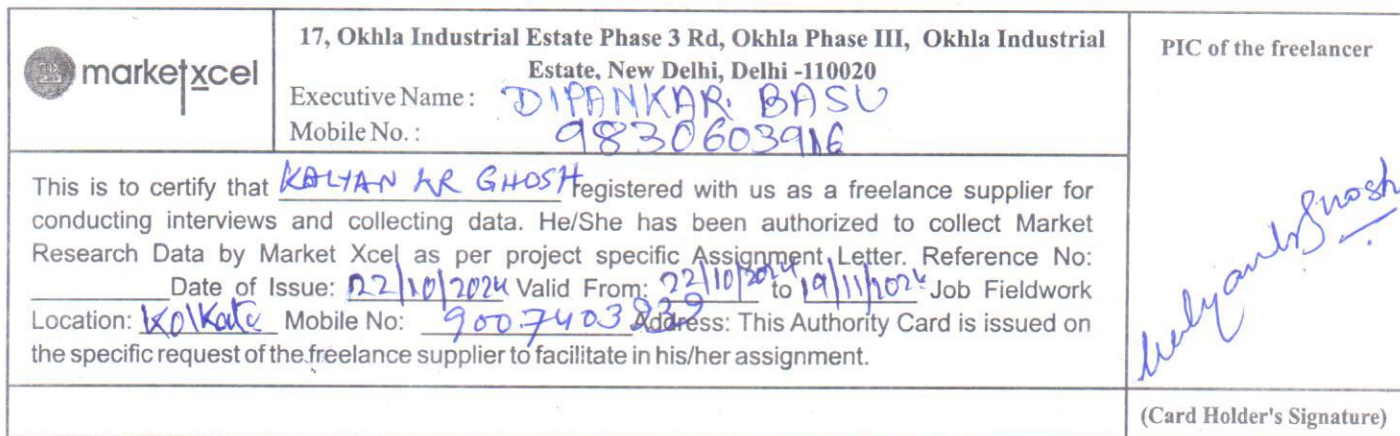 marketxcel
17, Okhla Industrial Estate Phase 3 Rd, Okhla Phase III, Okhla Industrial
Estate, New Delhi, Delhi -110020
Executive Name : DIPANKAR BASU
Mobile No. : 9830603916
This is to certify that KALYAN KR GHOSH registered with us as a freelance supplier for
conducting interviews and collecting data. He/She has been authorized to collect Market
Research Data by Market Xcel as per project specific Assignment Letter. Reference No:
Date of Issue: 22/10/2024 Valid From: 22/10/2024 to 19/11/2024 Job Fieldwork
Location: Kolkata Mobile No: 9007403839 Address: This Authority Card is issued on
the specific request of the freelance supplier to facilitate in his/her assignment.
PIC of the freelancer
(Card Holder's Signature)